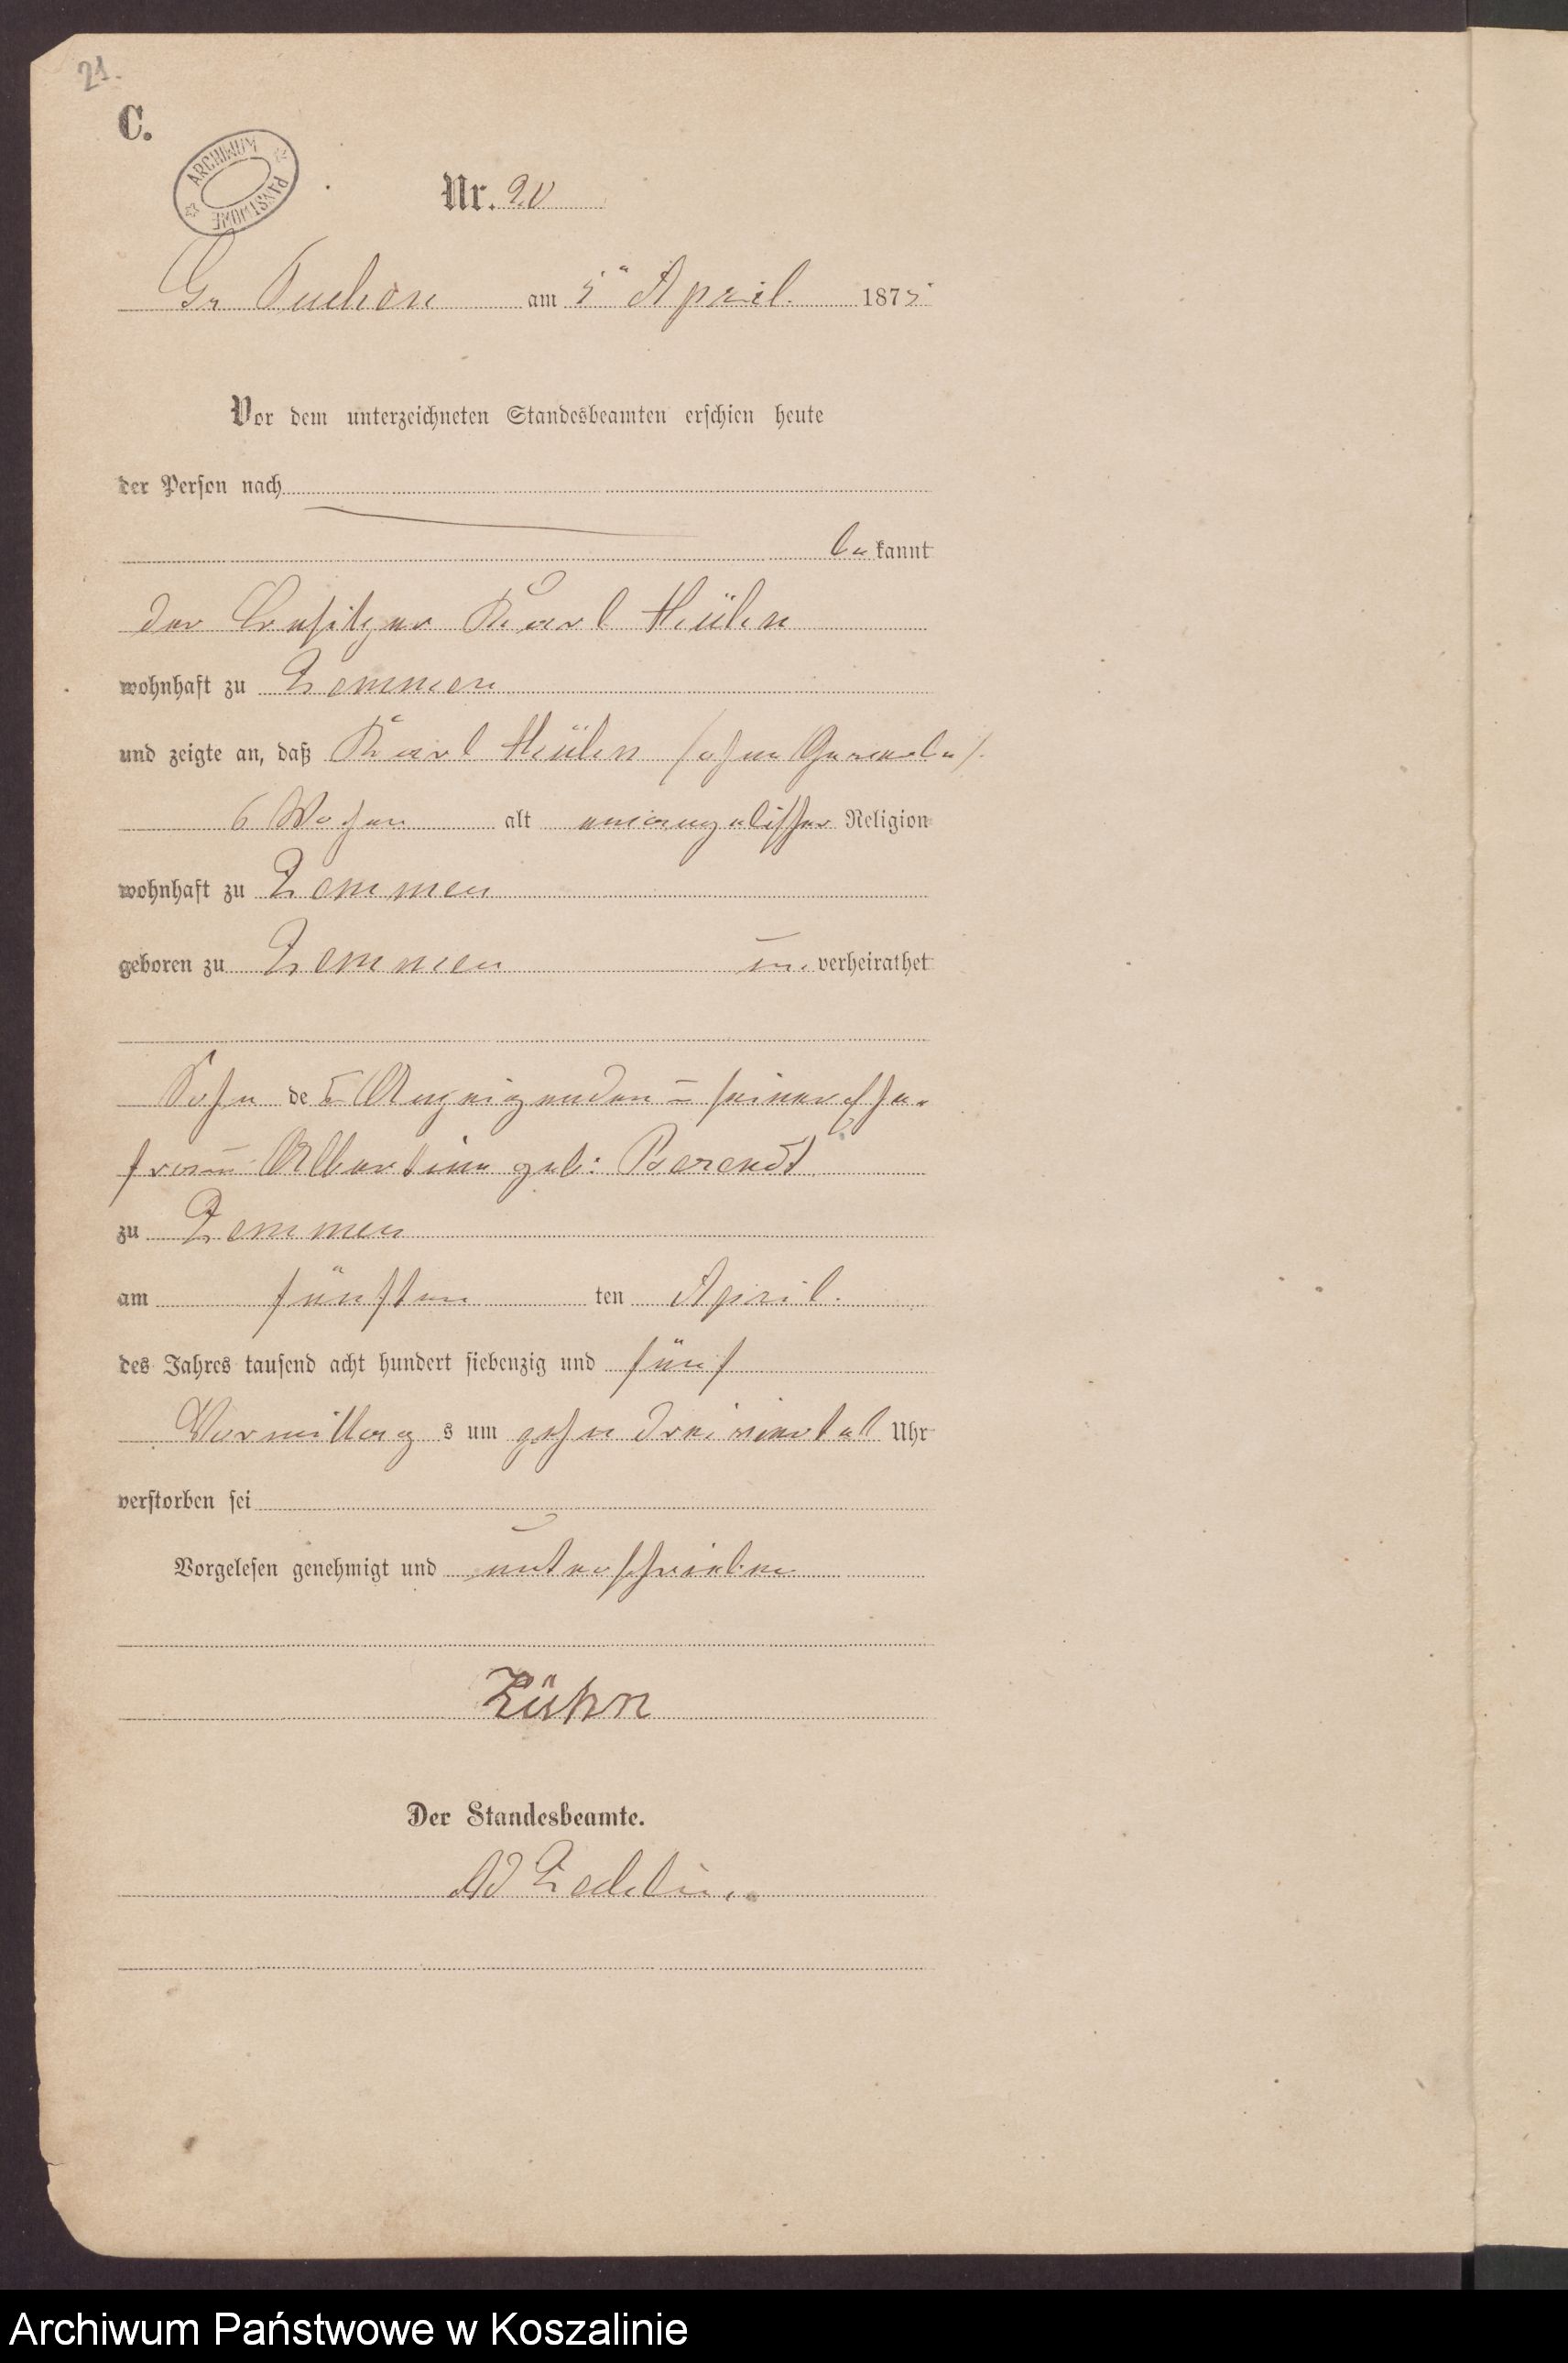 21.
C.
ARCHIWUM PAŃSTWOWE
Nr. 20
Gr Tuchen am 5n April. 1875
Vor dem unterzeichneten Standesbeamten erschien heute
der Person nach
bekannt
der Besitzer Karl
wohnhaft zu Zemmen
und zeigte an, daß Karl
6 Wochen alt evangelischer Religion
wohnhaft zu Zemmen
geboren zu Zemmen unverheirathet
Sohn des Anzeigenden u seiner Ehe-
frau Albertine geb: Berendt
zu Zemmen
am fünften ten April.
des Jahres tausend acht hundert siebenzig und fünf
Vormittags um zehn dreiviertel Uhr
verstorben sei
Vorgelesen genehmigt und unterschrieben
Kühn
Der Standesbeamte.
Archiwum Państwowe w Koszalinie